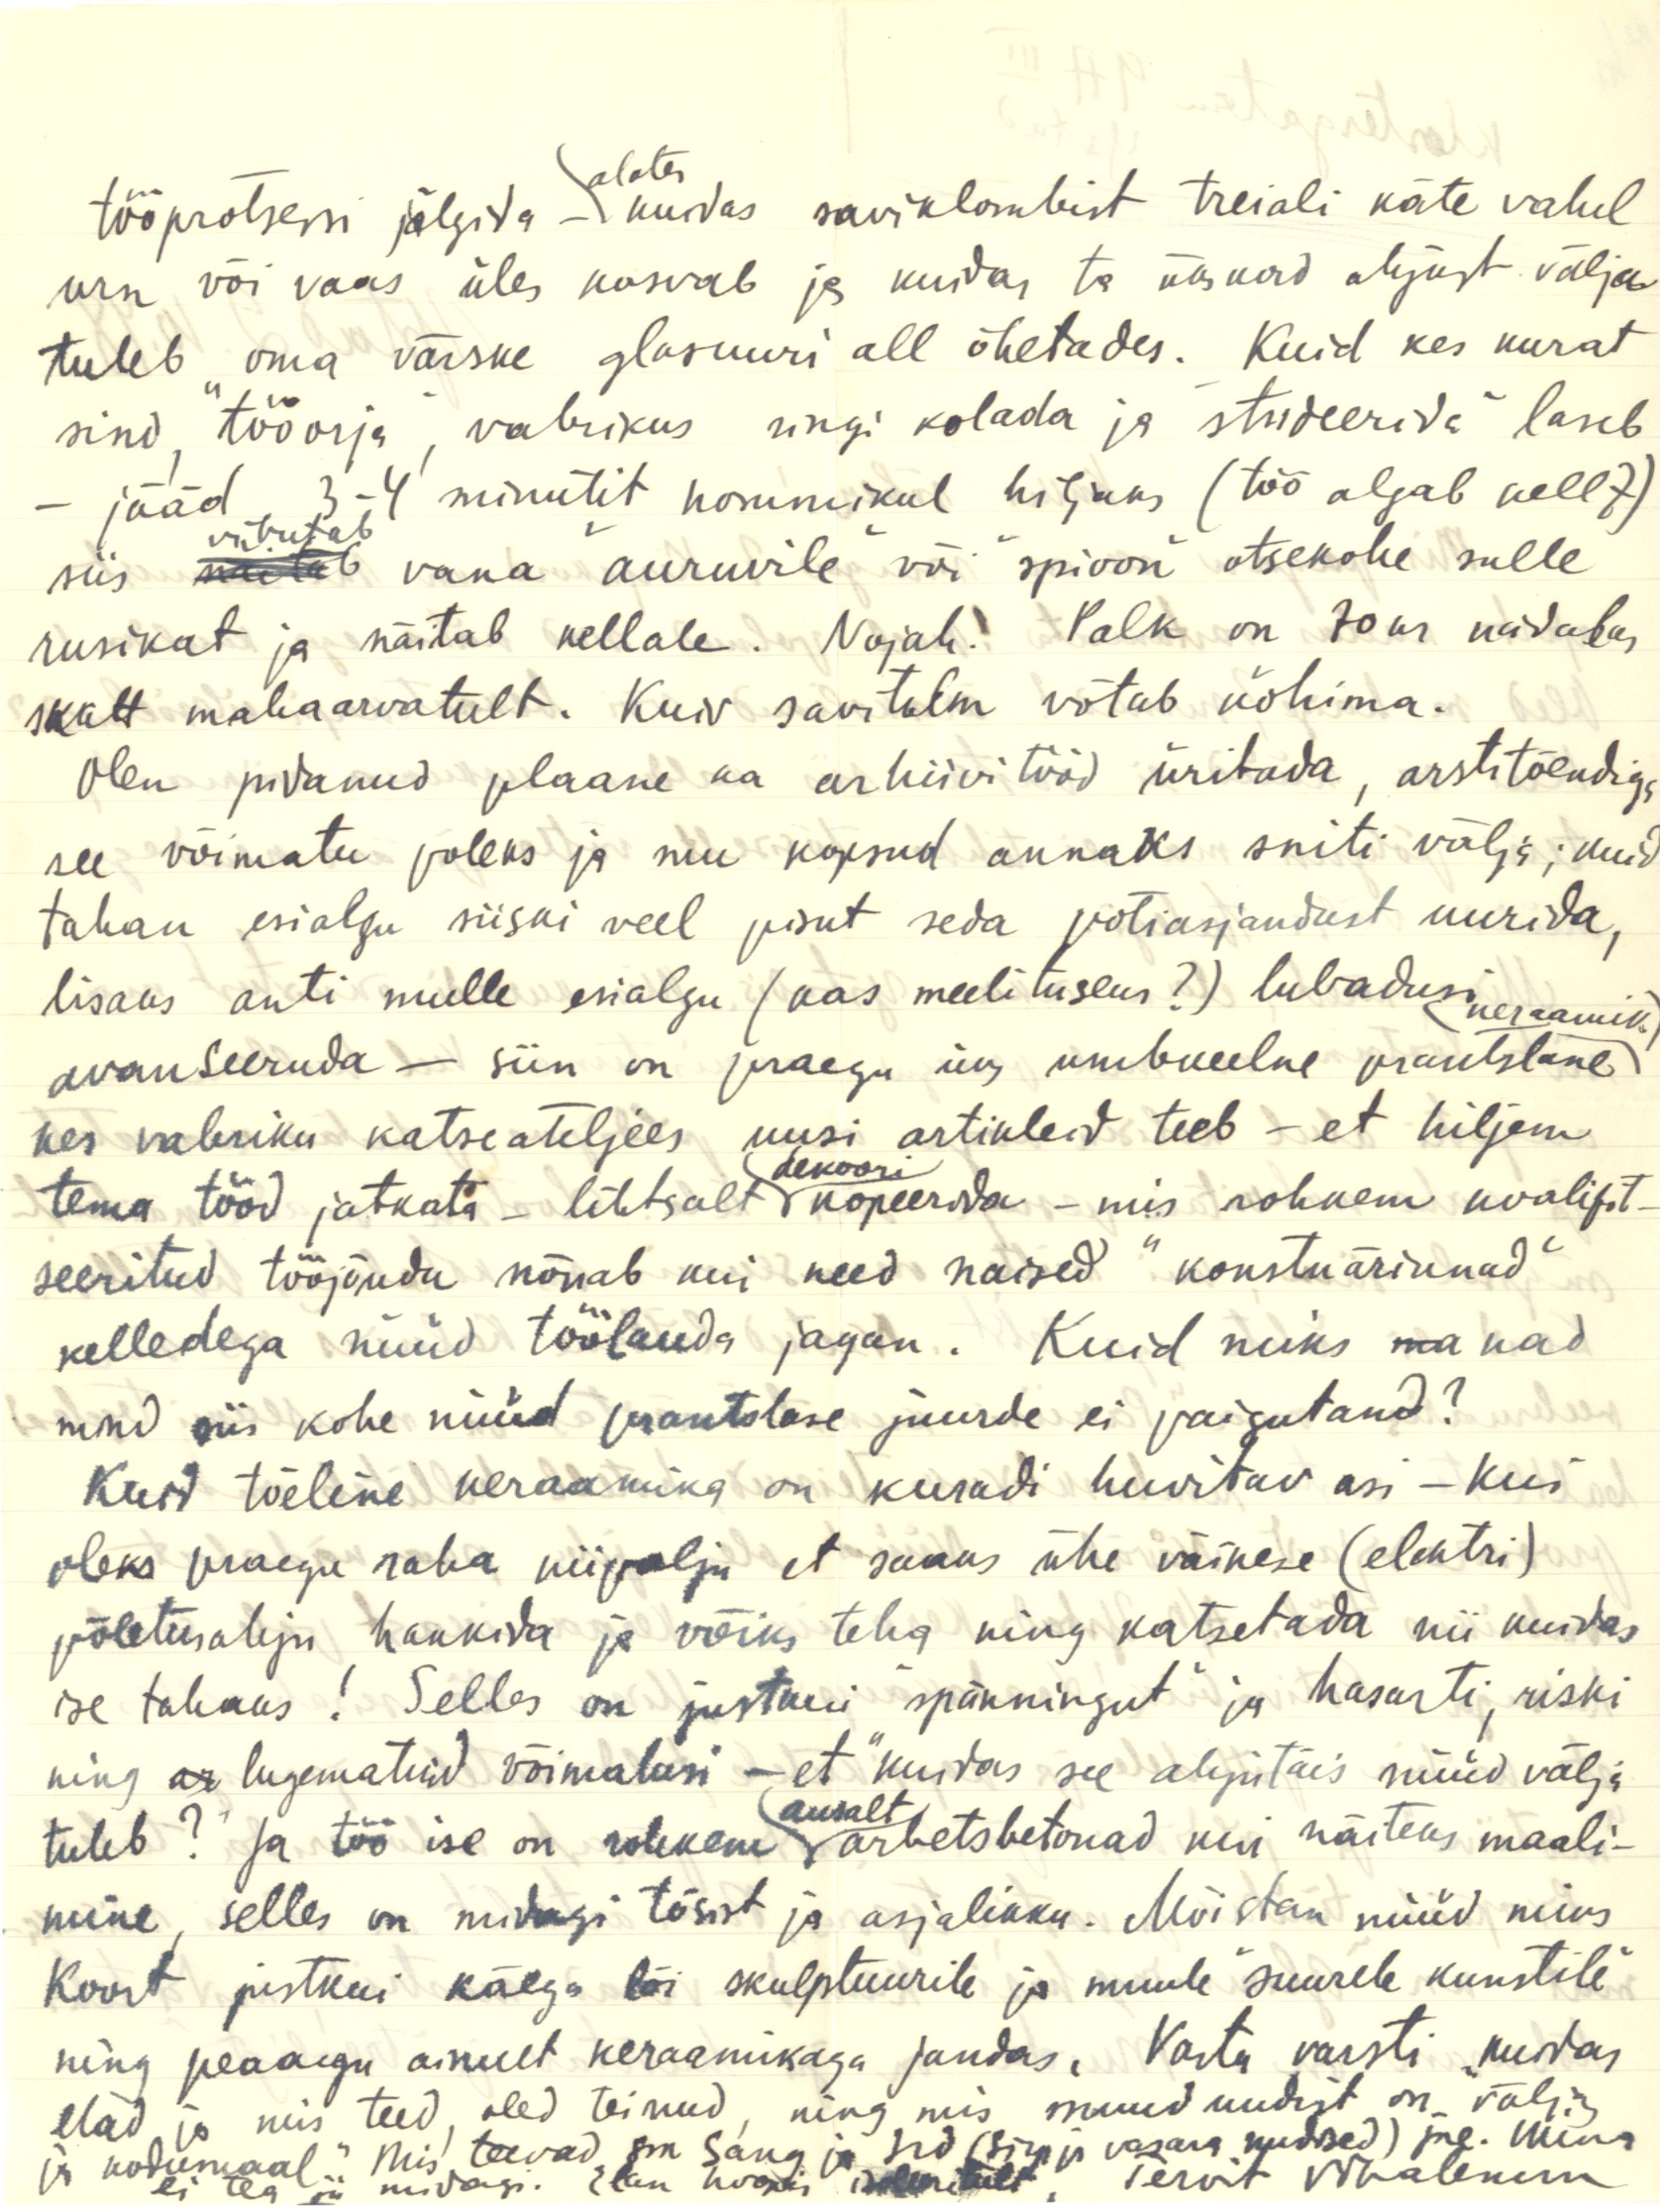 tööprotsessi jälgida – alates kuidas saviklombist treiali käte vahel
urn või vaas üles kasvab ja kuidas ta ükskord ahjust välja
tuleb oma värske glasuuri all õhetades. Kuid kes kurat
sind, "tööorja", vabrikus ringi kolada ja "studeerida" laseb
– jääd 3-4 minutit hommikul hiljaks (töö algab kell 7)
siis näitab vibutab vana "auruvile" või "spioon" otsekohe sulle
rusikat ja näitab kellale. Nojah! Palk on 70 kr nädalas
skatt mahaarvatult. Kuiv savitolm võtab köhima.
Olen pidanud plaane ka arhiivitööd üritada, arstitõendiga
see võimatu poleks ja mu kopsud annaks sniti välja; kuid
tahan esialgu siiski veel pisut seda potiasjandust uurida,
lisaks anti mulle esialgu (kas meelituseks?) lubadusi
avanseeruda – siin on praegu üks umbkeelne prantslane (keraamik)
kes vabriku katseateljees uusi artikleid teeb – et hiljem
tema tööd jatkata – lihtsalt dekoori kopeerida – mis rohkem kvalifit-
seeritud tööjõudu nõuab kui need naised "konstnärinnad"
kelledega nüüd töölauda jagan. Kuid miks ma nad
mind siis kohe nüüd prantslase juurde ei paigutand?
Kuid tõeline keraamika on kuradi huvitav asi – kui
oleks praegu raha niipalju et saaks ühe väikese (elektri)
põletusahju hankida ja võiks teha ning katsetada nii kuidas
ise tahaks! Selles on justkui "spänningut" ja hasarti, riski
ning ar lugematuid võimalusi – et "kuidas see ahjutäis nüüd välja
tuleb?" Ja töö ise on rohkem ausalt arbetsbetonad kui näiteks maali-
mine, selles on midagi tõsist ja asjalikku. Mõistan nüüd miks
Koort justkui käega lõi skulptuurile ja muule "suurele kunstile"
ning peaaegu ainult keraamikaga jandas. Vasta varsti kuidas
elad ja mis teed, oled teinud, ning mis muud uudist on "välja
ja kodumaal" Mis teevad Sang ja (Sirp ja vasara uudised) jne. Mina
ei tea midagi. Elan isoleeritult. Tervit